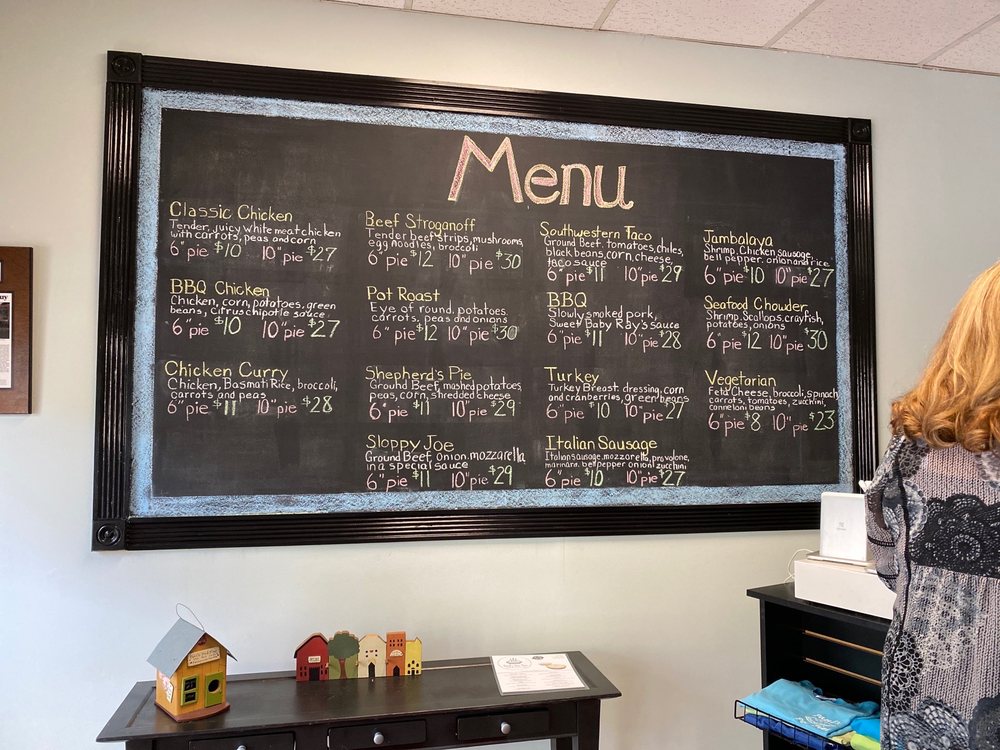 Menu
Classic Chicken
Tender, juicy white meat chicken
with carrots, peas and corn
6" pie $10 10" pie $27
BBQ Chicken
Chicken, corn, potatoes, green
beans, citrus chipotle sauce
6" pie $10 10" pie $27
Chicken Curry
Chicken, Basmati Rice, broccoli,
carrots and peas
6" pie $11 10" pie $28
Beef Stroganoff
Tender beef strips, mushrooms,
egg noodles, broccoli
6" pie $12 10" pie $30
Pot Roast
Eye of round, potatoes,
carrots, peas and onions
6" pie $12 10" pie $30
Shepherd's Pie
Ground Beef, mashed potatoes,
peas, corn, shredded cheese
6" pie $11 10" pie $29
Sloppy Joe
Ground Beef, onion, mozzarella
in a special sauce
6" pie $11 10" pie $29
Southwestern Taco
Ground Beef, tomatoes, chiles,
black beans, corn, cheese,
taco sauce
6" pie $11 10" pie $29
BBQ
Slowly smoked pork,
Sweet Baby Ray's sauce
6" pie $11 10" pie $28
Turkey
Turkey Breast, dressing, corn
and cranberries, green beans
6" pie $10 10" pie $27
Italian Sausage
Italian sausage, mozzarella, provolone,
marinara, bell pepper, onion, zucchini
6" pie $10 10" pie $27
Jambalaya
Shrimp, Chicken, sausage,
bell pepper, onion and rice
6" pie $10 10" pie $27
Seafood Chowder
Shrimp, Scallops, crayfish,
potatoes, onions
6" pie $12 10" pie $30
Vegetarian
Feta Cheese, broccoli, spinach,
carrots, tomatoes, zucchini,
canneloni beans
6" pie $8 10" pie $23